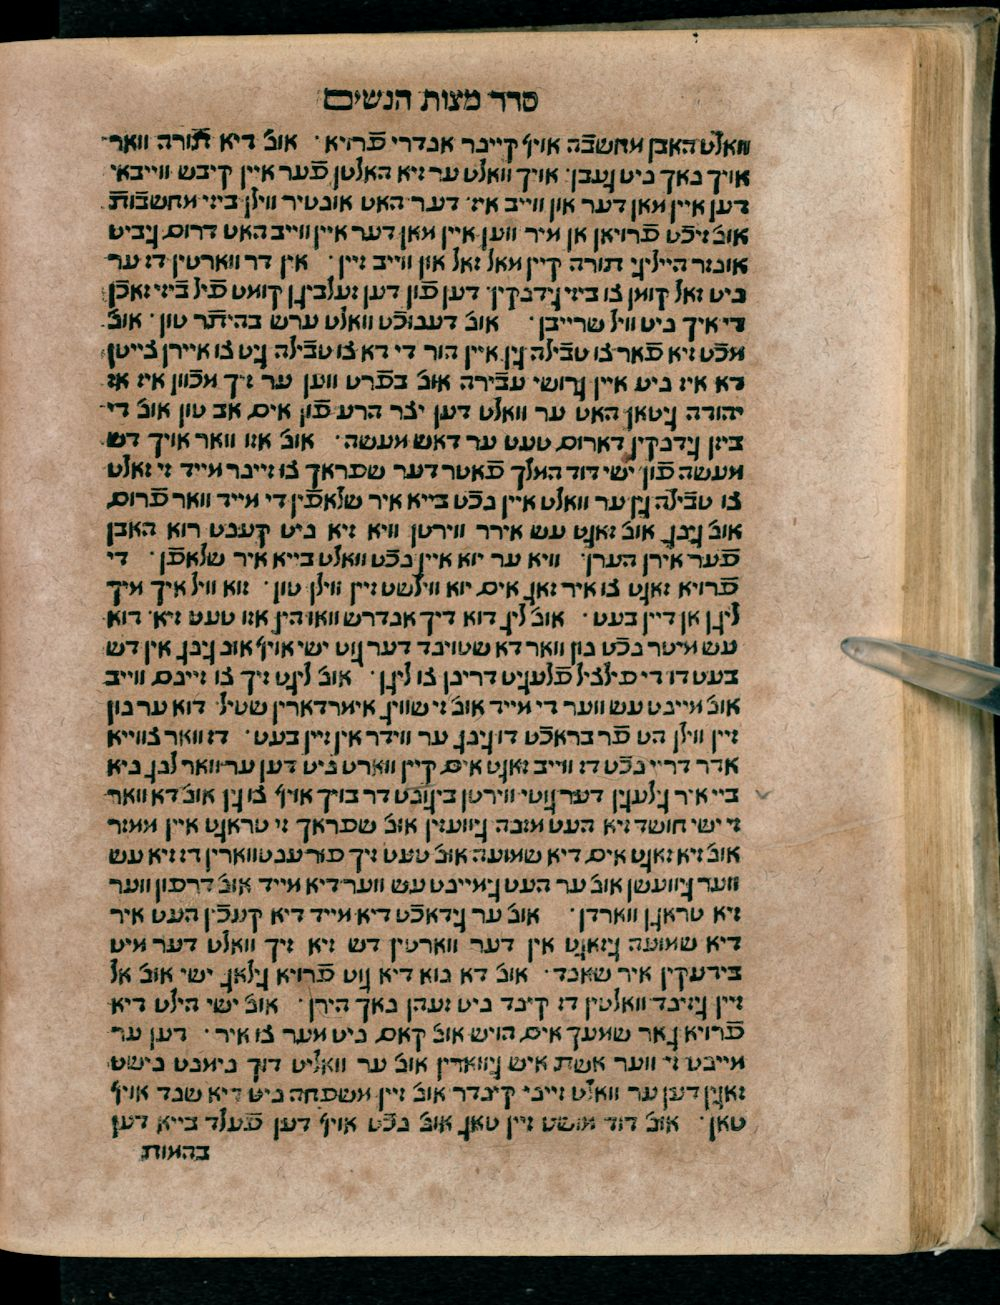 סדר מצות הנשים
וואלט האבן מחשבֿה אויף קיינר אנדרי פֿרויא · אונ' דיא תורה וואר
אויך נאך ניט געבן· אויך וואלט ער זיא האלטן פֿער איין קיבש ווייבא'
דען איין מאן דער און ווייב איז· דער האט אונטיר ווילן ביזי מחשבֿות
אונ' זיכֿט פֿרויאן אן מיר ווען איין מאן דער איין ווייב האט דרום גיביט
אונזר הייליגי תורה קיין מאל זאל און ווייב זיין · אין דר ווארטין דז ער
ניט זאל קומן צו ביזי גידנקין· דען פֿון דען זעלביגן קומט פֿיל ביזי זאכֿן
די איך ניט וויל שרייבן· אונ' דעננוכֿט וואלט ערש בהיתר טון · אונ'
מכֿט זיא פֿאר צו טבֿילה גין איין הור די דא צו טבֿילה גיט צו איירן צייטן
דא איז ניט איין גרושי עבֿירה אונ' בפֿרט ווען ער זיך מכֿוון איז אז
יהודה גיטאן האט ער וואלט דען יצר הרע פֿון אים אב טון אונ' די
ביזן גידנקין דארום טעט ער דאש מעשה· אונ' אזו וואר אויך דש
מעשה פֿון ישי דוד המלך פֿאטר דער שפראך צו זיינר מייד זי זאלט
צו טבֿילה גין ער וואלט איין נכֿט בייא איר שלאפֿין די מייד וואר פֿרום
אונ' גינג אונ' זאגט עש אירר ווירטן וויא זיא ניט קענט רוא האבן
פֿער אירן הערן· וויא ער יוא איין נכֿט וואלט בייא איר שלאפֿן · די
פֿרויא זאגט צו איר זאג אים יוא ווילשט זיין ווילן טון· זוא וויל איך מיך
ליגן אן דיין בעט · אונ' ליג דוא דיך אנדרש וואו הין אזו טעט זיא· דוא
עש מיטר נכֿט נון וואר דא שטוינד דער גוט ישי אויף אונ' גינג אין דש
בעט דו די מייד פֿלעגיט דרינן צו ליגן · אונ' ליגט זיך צו זיינם ווייב
אונ' מיינט עש ווער די מייד אונ' זי שוויג אימרדארין שטיל· דוא ער נון
זיין ווילן הט פֿר בראכֿט דו גינג ער ווידר אין זיין בעט· דז וואר צווייא
אדר דרייא נכֿט דז ווייב זאגט אים קיין ווארט ניט דען ער וואר לנג ניא
בייא איר גילעגין דער גוטי ווירטן ביגונט דר בויך אויף צו גין אונ' דא וואר
זי ישי חושד זיא העט מזנה גיוועזין אונ' שפראך זי טראגט איין ממזר
אונ' זיא זאגט אים דיא שמועה אונ' טעט זיך פֿור ענטווארין דז זיא עש
ווער גיוועשן אונ' ער העט גימיינט עש ווער דיא מייד אונ' דרפון ווער
זיא טראגן ווארדן· אונ' ער גידאכֿט דיא מייד דיא קעכֿין העט איר
דיא שמועה גיזאגט אין דער ווארטין דש זיא זיך וואלט דער מיט
בידעקין איר שאנד· אונ' דא נוא דיא גוט פֿרויא גילאג ישי אונ' אל
זיין גיזינד וואלטין דז קינד ניט זעהן נאך הירן· אונ' ישי הילט דיא
פֿרויא גאר שמעך אים הויש אונ' קאם ניט מער צו איר · דען ער
מיינט זי ווער אשת איש גיווארין אונ' ער וואליט דוך נימנט נישט
זאגין דען ער וואלט זייני קינדר אונ' זיין משפחה ניט דיא שנד אויף
טאן· אונ' דוד מושט זיין טאג אונ' נכֿט אויף דען פֿעלד בייא דען
בהמות